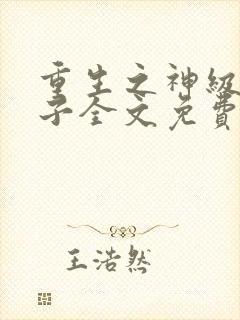 重生之神级
子全文免费
王浩然